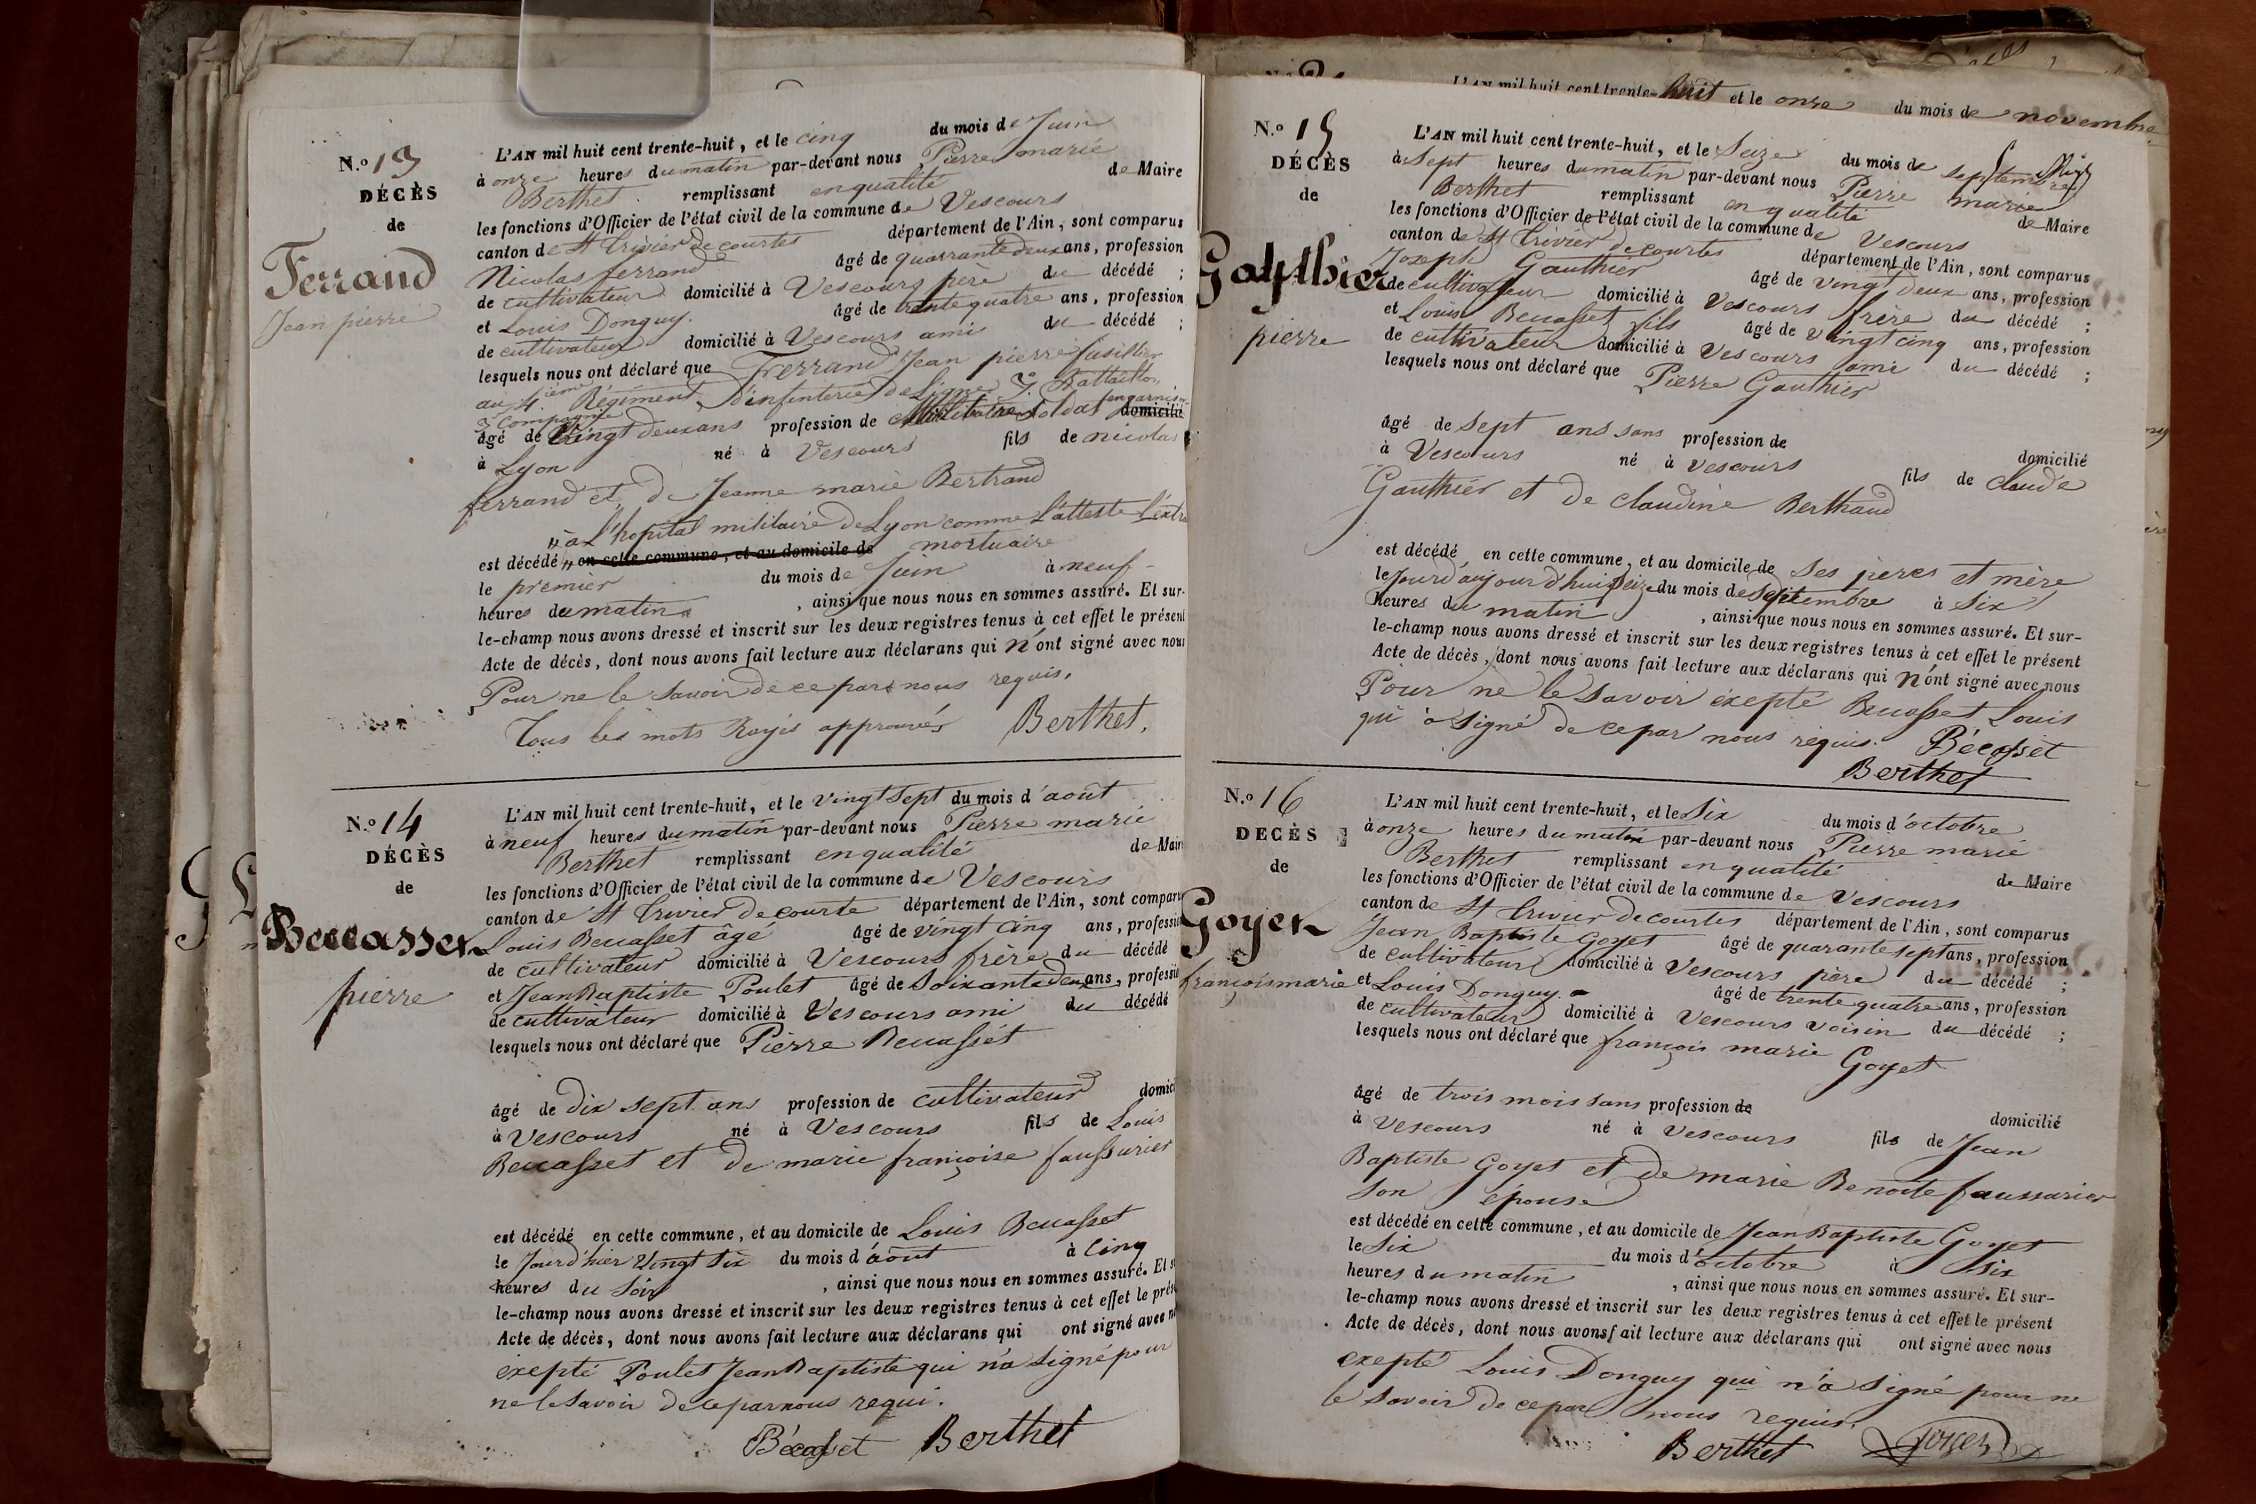 N.o 13
DÉCÈS
de
Ferrand
Jean pierre
L'AN mil huit cent trente-huit, et le cinq du mois de Juin
à onze heures du matin par-devant nous Pierre marie
Berthet remplissant en qualité de Maire
les fonctions d'Officier de l'état civil de la commune de Vescours
canton de St Trivier de courtes département de l'Ain, sont comparus
Nicolas ferrand âgé de quarrante deux ans, profession
de cultivateur domicilié à Vescours père du décédé ;
et Louis Donguy. âgé de trente quatre ans, profession
de cultivateur domicilié à Vescours ami du décédé ;
lesquels nous ont déclaré que Ferrand Jean pierre fusillier
au 4ième Régiment d'infinterie de Ligne 3e Battaillon
3e Compagnie en garnison
âgé de vingt deux ans profession de soldat domicilié
à Lyon né à Vescours fils de nicolas
ferrand et de Jeanne marie Bertrand
"à L'hopital militaire de Lyon comme L'atteste L'extra
est décédé " en cette commune, et au domicile de mortuaire
le premier du mois de Juin à neuf
heures du matin , ainsi que nous nous en sommes assuré. Et sur-
le-champ nous avons dressé et inscrit sur les deux registres tenus à cet effet le présent
Acte de décès, dont nous avons fait lecture aux déclarans qui n'ont signé avec nous
Pour ne le savoir de ce par nous requis.
Tous les mots Rayés approuvés Berthet.
N.o 14
DÉCÈS
de
Beccasset
pierre
L'AN mil huit cent trente-huit, et le vingt sept du mois d'août
à neuf heures du matin par-devant nous Pierre marie
Berthet remplissant en qualité de Maire
les fonctions d'Officier de l'état civil de la commune de Vescours
canton de St Trivier de courte département de l'Ain, sont comparu
Louis Beccasset âgé âgé de vingt cinq ans, professio
de cultivateur domicilié à Vescours frère du décédé
et Jean Baptiste Poulet âgé de Soixante deux ans, professio
de cultivateur domicilié à Vescours ami du décédé
lesquels nous ont déclaré que Pierre Beccasset
âgé de dix sept ans profession de cultivateur domici
à Vescours né à Vescours fils de Louis
Beccasset et de marie françoise faussurier
est décédé en cette commune, et au domicile de Louis Beccasset
le Jour d'hier vingt six du mois d'août à Cinq
heures du Soir , ainsi que nous nous en sommes assuré. Et s
le-champ nous avons dressé et inscrit sur les deux registres tenus à cet effet le prés
Acte de décès, dont nous avons fait lecture aux déclarans qui ont signé avec n
exepté Poulet Jean Baptiste qui n'a signé pour
ne le savoir de ce par nous requi.
Bécasset Berthet
L'AN mil huit cent trente-huit et le onze du mois de novembre
N.o 15
DÉCÈS
de
Gauthier
pierre
L'AN mil huit cent trente-huit, et le Seize du mois de septembre
à Sept heures du matin par-devant nous Pierre marie
Berthet remplissant en qualité de Maire
les fonctions d'Officier de l'état civil de la commune de Vescours
canton de St Trivier de courtes département de l'Ain, sont comparus
Joseph Gauthier âgé de vingt deux ans, profession
de cultivateur domicilié à Vescours frère du décédé ;
et Louis Beccasset fils âgé de vingt cinq ans, profession
de cultivateur domicilié à Vescours ami du décédé ;
lesquels nous ont déclaré que Pierre Gauthier
âgé de sept ans sans profession de domicilié
à Vescours né à vescours fils de claude
Gauthier et de claudine Berthaud
est décédé en cette commune, et au domicile de Ses pères et mère
le Jourd'aujourd'hui Seize du mois de Septembre à Six
heures du matin , ainsi que nous nous en sommes assuré. Et sur-
le-champ nous avons dressé et inscrit sur les deux registres tenus à cet effet le présent
Acte de décès, dont nous avons fait lecture aux déclarans qui n'ont signé avec nous
Pour ne le savoir éxepté Beccasset Louis
qui a signé de ce par nous requis. Bécasset
Berthet
N.o 16
DECÈS
de
Goyet
françois marie
L'AN mil huit cent trente-huit, et le Six du mois d'octobre
à onze heures du matin par-devant nous Pierre marie
Berthet remplissant en qualité de Maire
les fonctions d'Officier de l'état civil de la commune de Vescours
canton de St Trivier de courtes département de l'Ain, sont comparus
Jean Baptiste Goyet âgé de quarante sept ans, profession
de cultivateur domicilié à Vescours père du décédé ;
et Louis Donguy. âgé de trente quatre ans, profession
de cultivateur domicilié à Vescours voisin du décédé ;
lesquels nous ont déclaré que françois marie Goyet
âgé de trois mois sans profession de domicilié
à Vescours né à Vescours fils de Jean
Baptiste Goyet et de marie Benoite faussurier
son épouse
est décédé en cette commune, et au domicile de Jean Baptiste Goyet
le Six du mois d'octobre à six
heures du matin , ainsi que nous nous en sommes assuré. Et sur-
le-champ nous avons dressé et inscrit sur les deux registres tenus à cet effet le présent
Acte de décès, dont nous avons fait lecture aux déclarans qui ont signé avec nous
exepté Louis Donguy qui n'a signé pour ne
le savoir de ce par nous requis.
Berthet Goyet